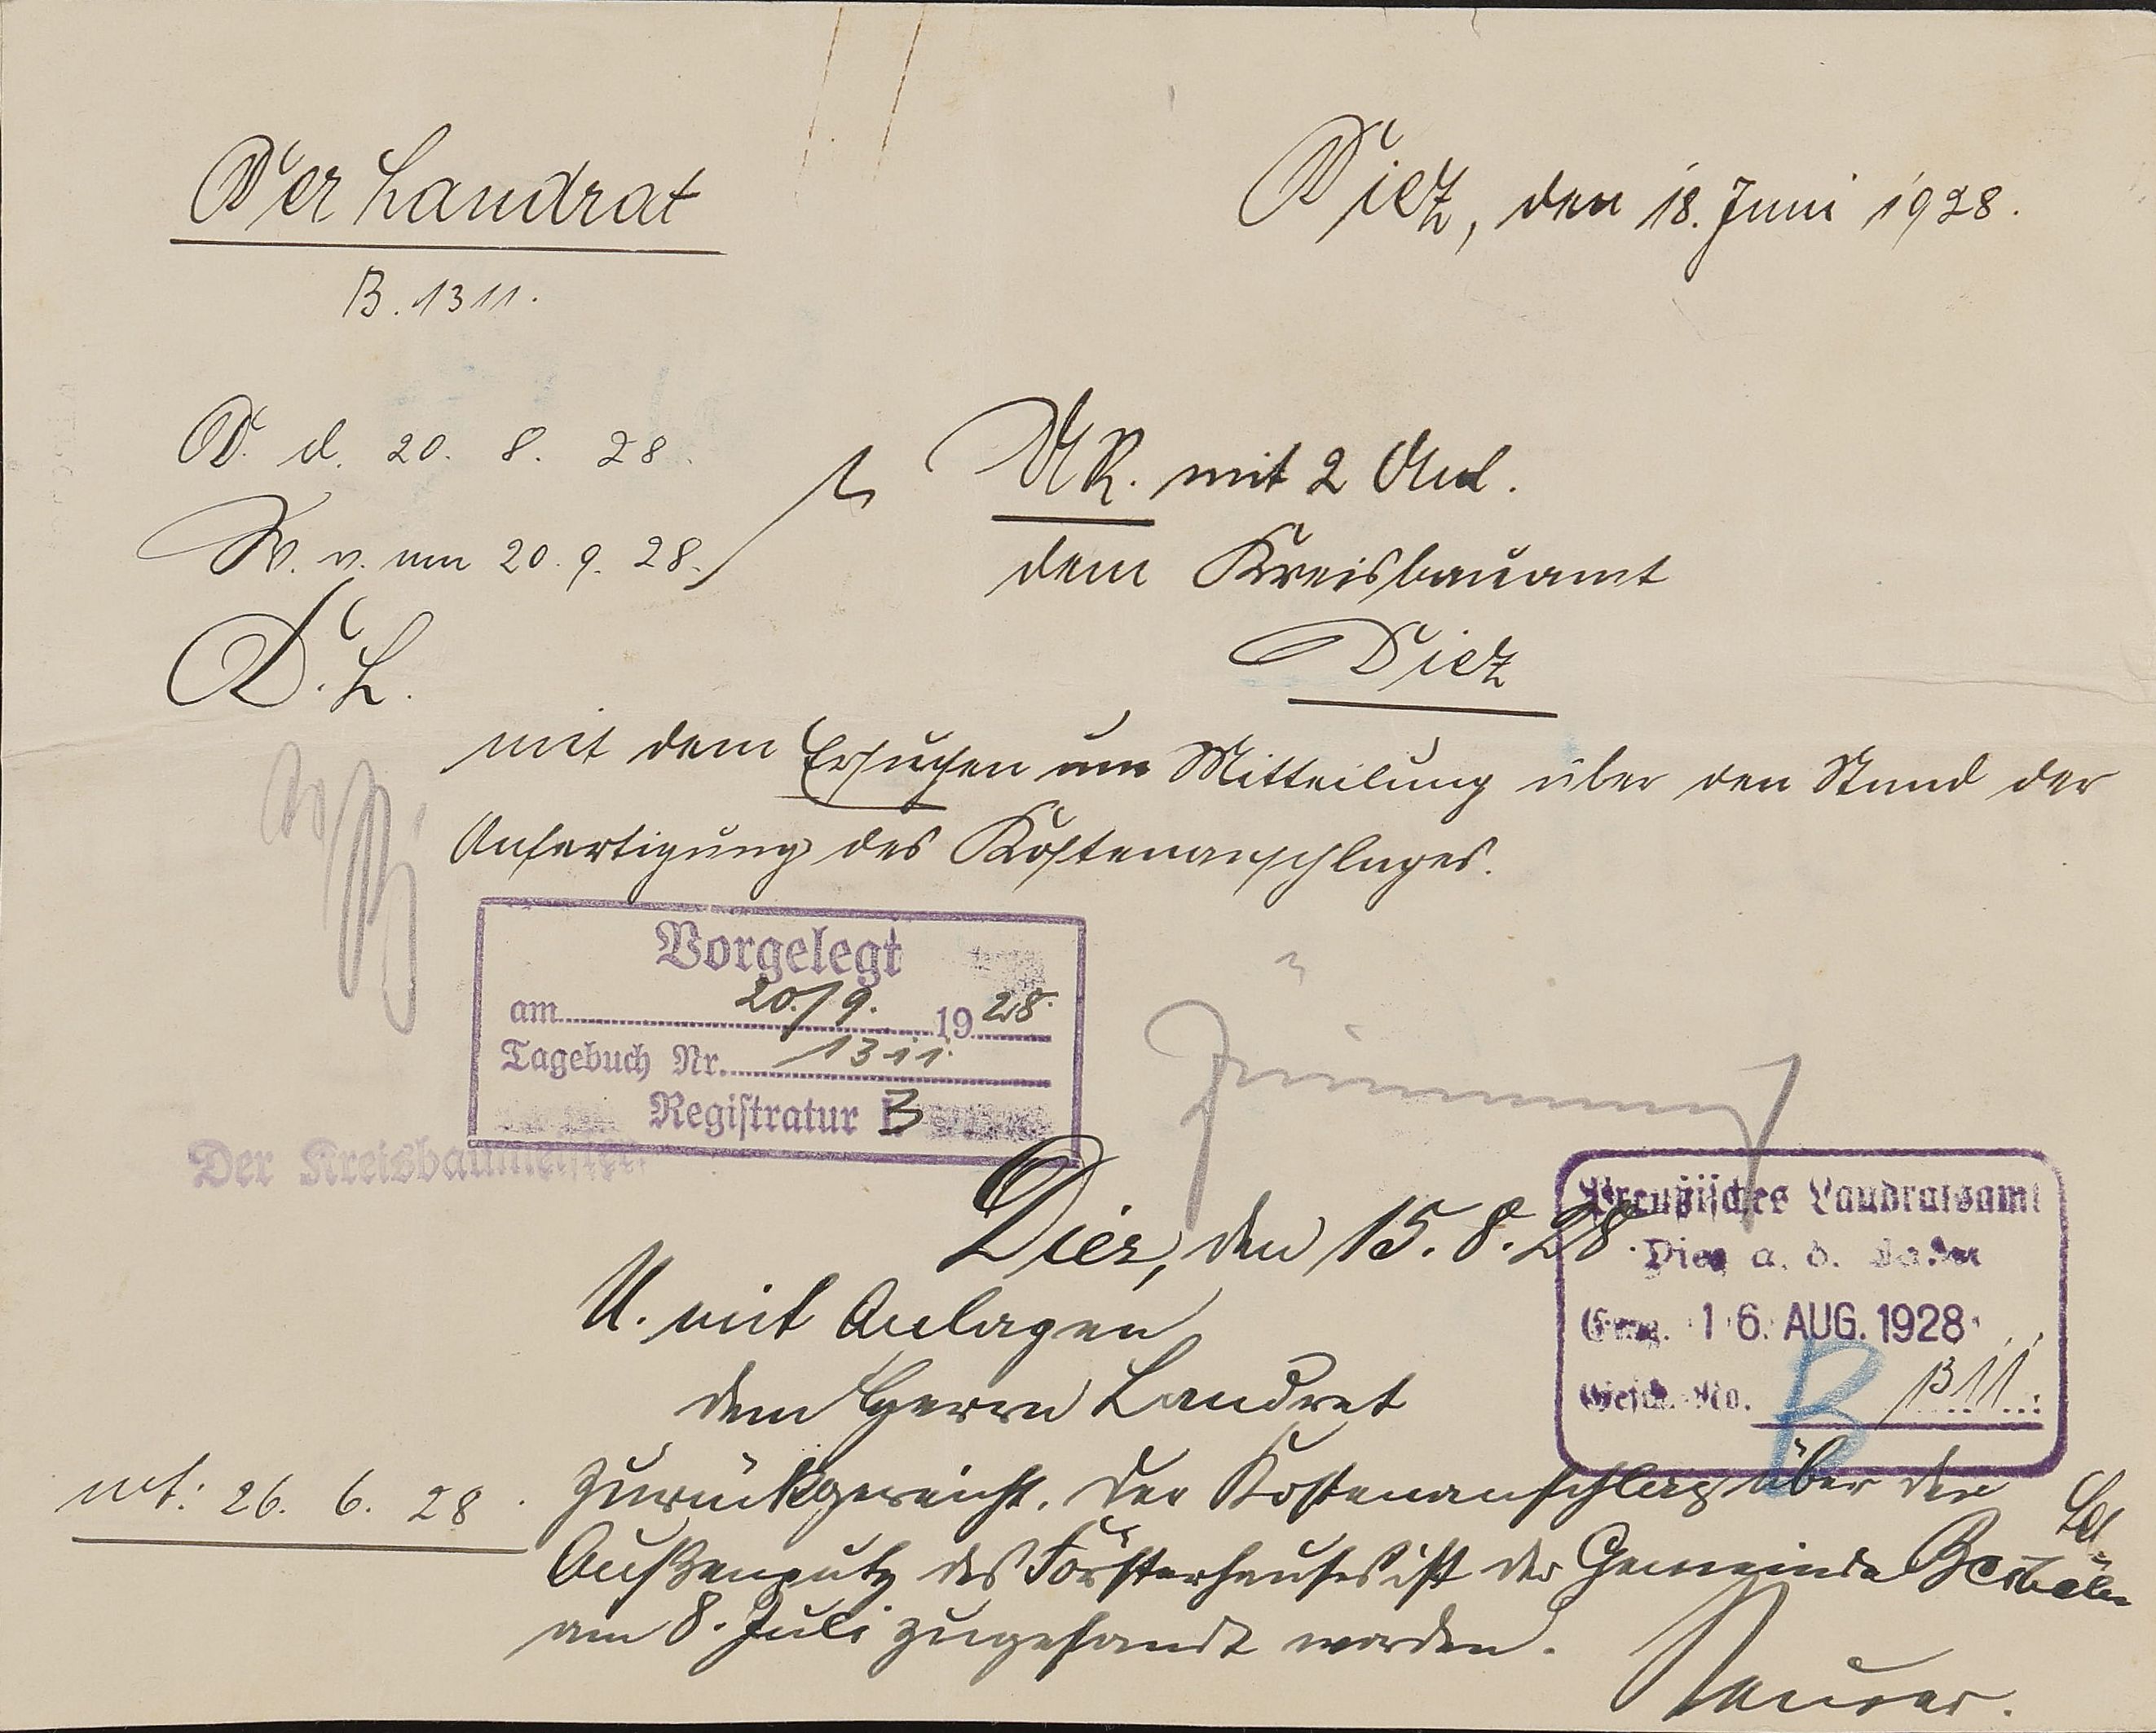 Der Landrat
B. 1311.
Diez, den 18. Juni 1928.
D. d. 20. 8. 28.
W. v. am 20. 9. 28.
D. L.
UR. mit 2 Anl.
dem Kreisbauamt
Diez
mit dem Ersuchen um Mitteilung über den Stand der
Anfertigung des Kostenanschlages.
Vorgelegt
am 20/9. 1928.
Tagebuch Nr. 1311.
Registratur B
Der Kreisbaumeister.
Diez, den 15. 8. 28.
Preußisches Landratsamt
Diez a. d. Lahn
Eing. 16. AUG. 1928
Gesch. No. B 1311.
U. mit Anlagen
dem Herrn Landrat
zurückgereicht. Der Kostenanschlag über den
Außenputz des Försterhauses ist der Gemeinde
am 8. Juli zugesandt worden.
26. 6. 28.